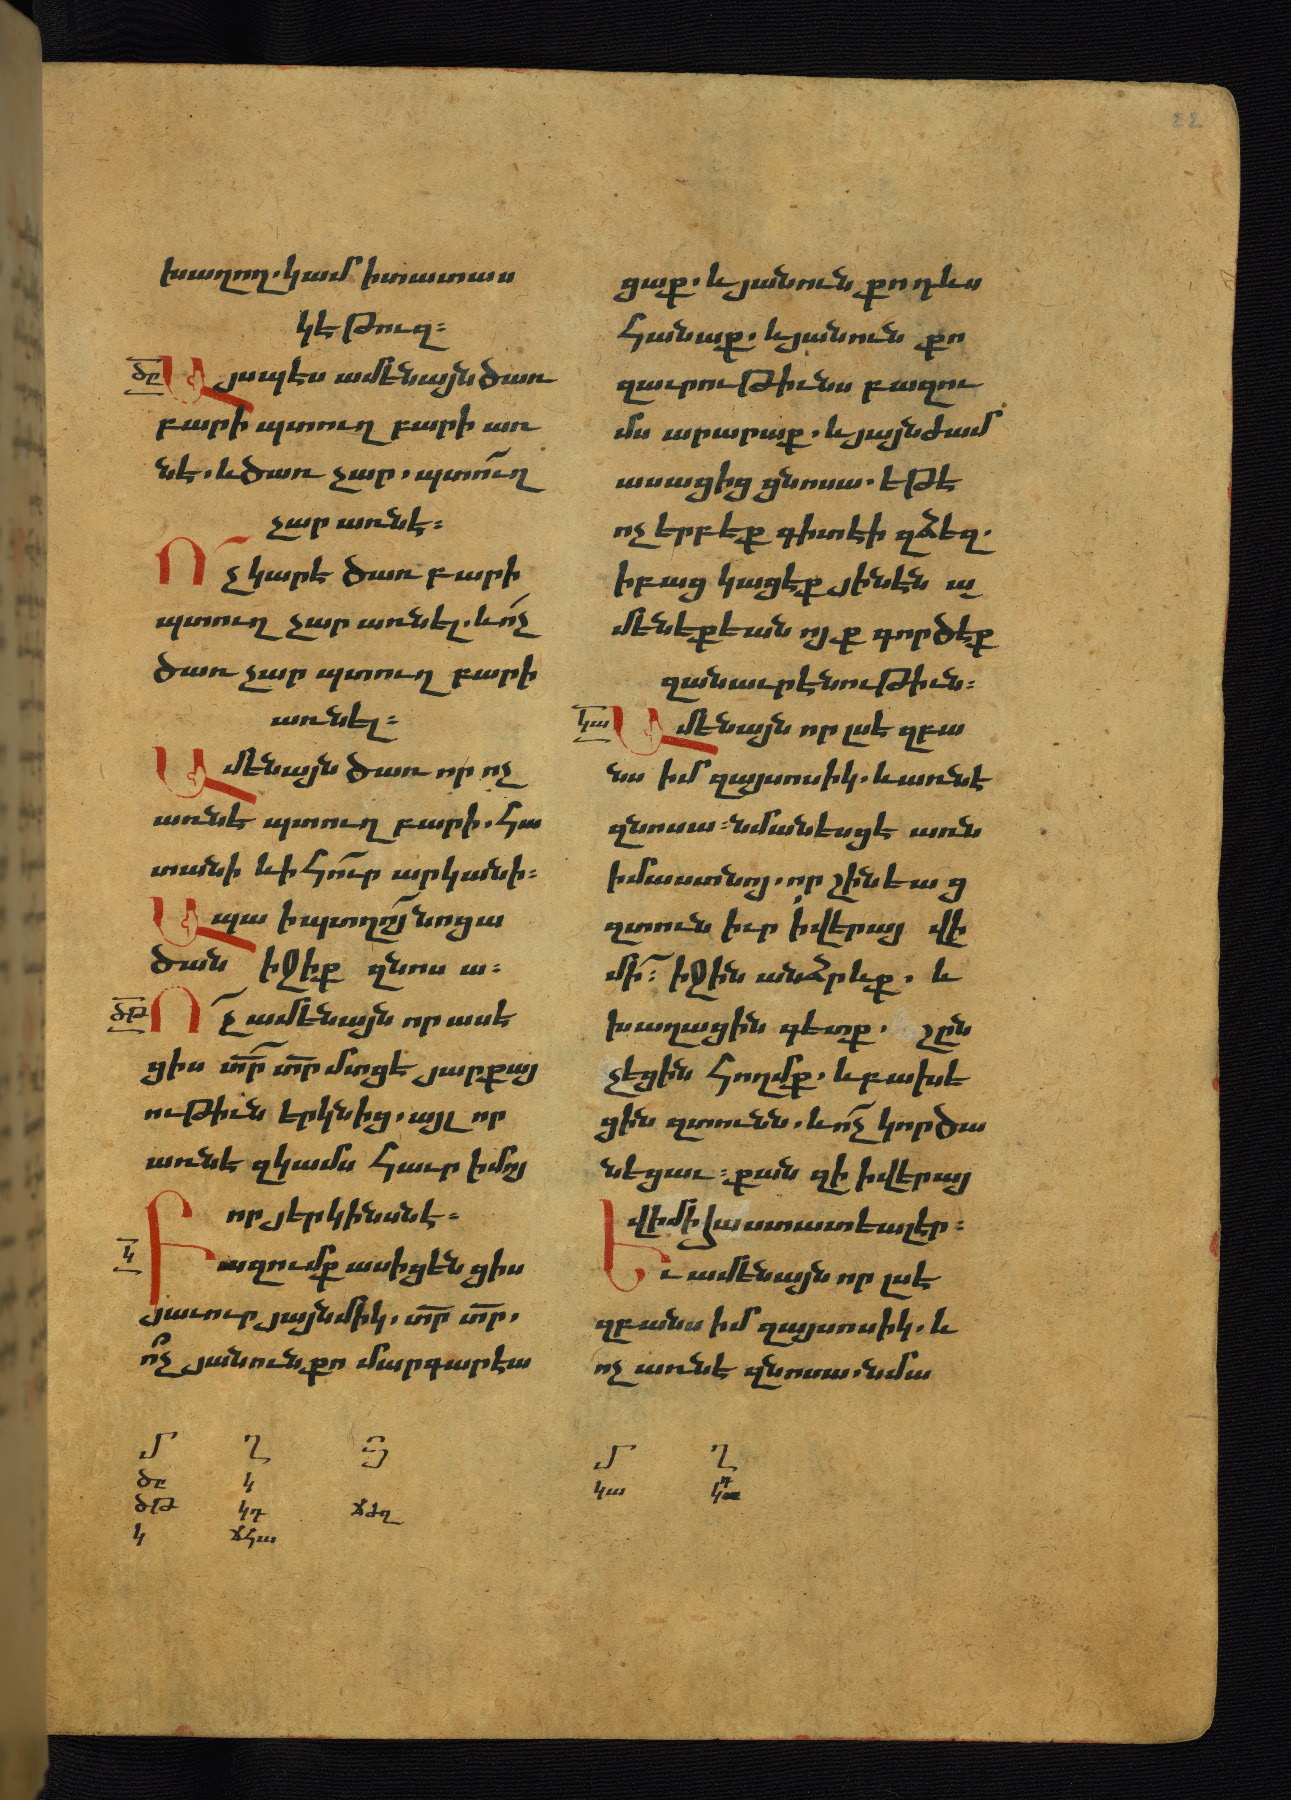 խաղող. կամ ի տատաս
կէ թուզ։
ԾԸ Այսպէս ամենայն ծառ
բարի պտուղ բարի առ
նէ. և ծառ չար. պտուղ
չար առնէ։
Ոչ կարէ ծառ բարի
պտուղ չար առնել. և ոչ
ծառ չար պտուղ բարի
առնել։
Ամենայն ծառ որ ոչ
առնէ պտուղ բարի. հա
տանի և ի հուր արկանի։
Ապա ի պտղոյ նոցա
ծանիջիք զնոսա։
ԾԹ Ոչ ամենայն որ ասէ
ցիս տր տր մտցէ յարքայ
ութիւն երկնից. այլ որ
առնէ զկամս հաւր իմոյ
որ յերկինսնէ։
Կ Բազումք ասիցեն ցիս
յաւուր յայնմիկ. տր տր.
ոչ յանուն քո մարգարէա
ՄՂ
ծը կ
ծթ կդ ճժղ
կ ճհա
ցաք. և յանուն քո դևս
հանաք. և յանուն քո
զաւրութիւնս բազու
մս արարաք. և յայնժամ
ասացից ցնոսա. եթէ
ոչ երբեք գիտէի զձեզ.
ի բաց կացէք յինէն ա
մենեքեան ոյք գործէք
զանաւրէնութիւն։
ԿԱ Ամենայն որ լսէ զբա
նս իմ զայսոսիկ. և առնէ
զնոսա։ նմանեսցէ առն
իմաստնոյ. որ շինեաց
զտուն իւր ի վերայ վի
մի։ իջին անձրևք. և
խաղացին գետք. շըն
չեցին հողմք. և բախե
ցին զտունն. և ոչ կործա
նեցաւ։ քան զի ի վերայ
վիմի հաստատեալ էր։
Եւ ամենայն որ լսէ
զբանս իմ զայսոսիկ. և
ոչ առնէ զնոսա. նմա
Մ Ղ
կա